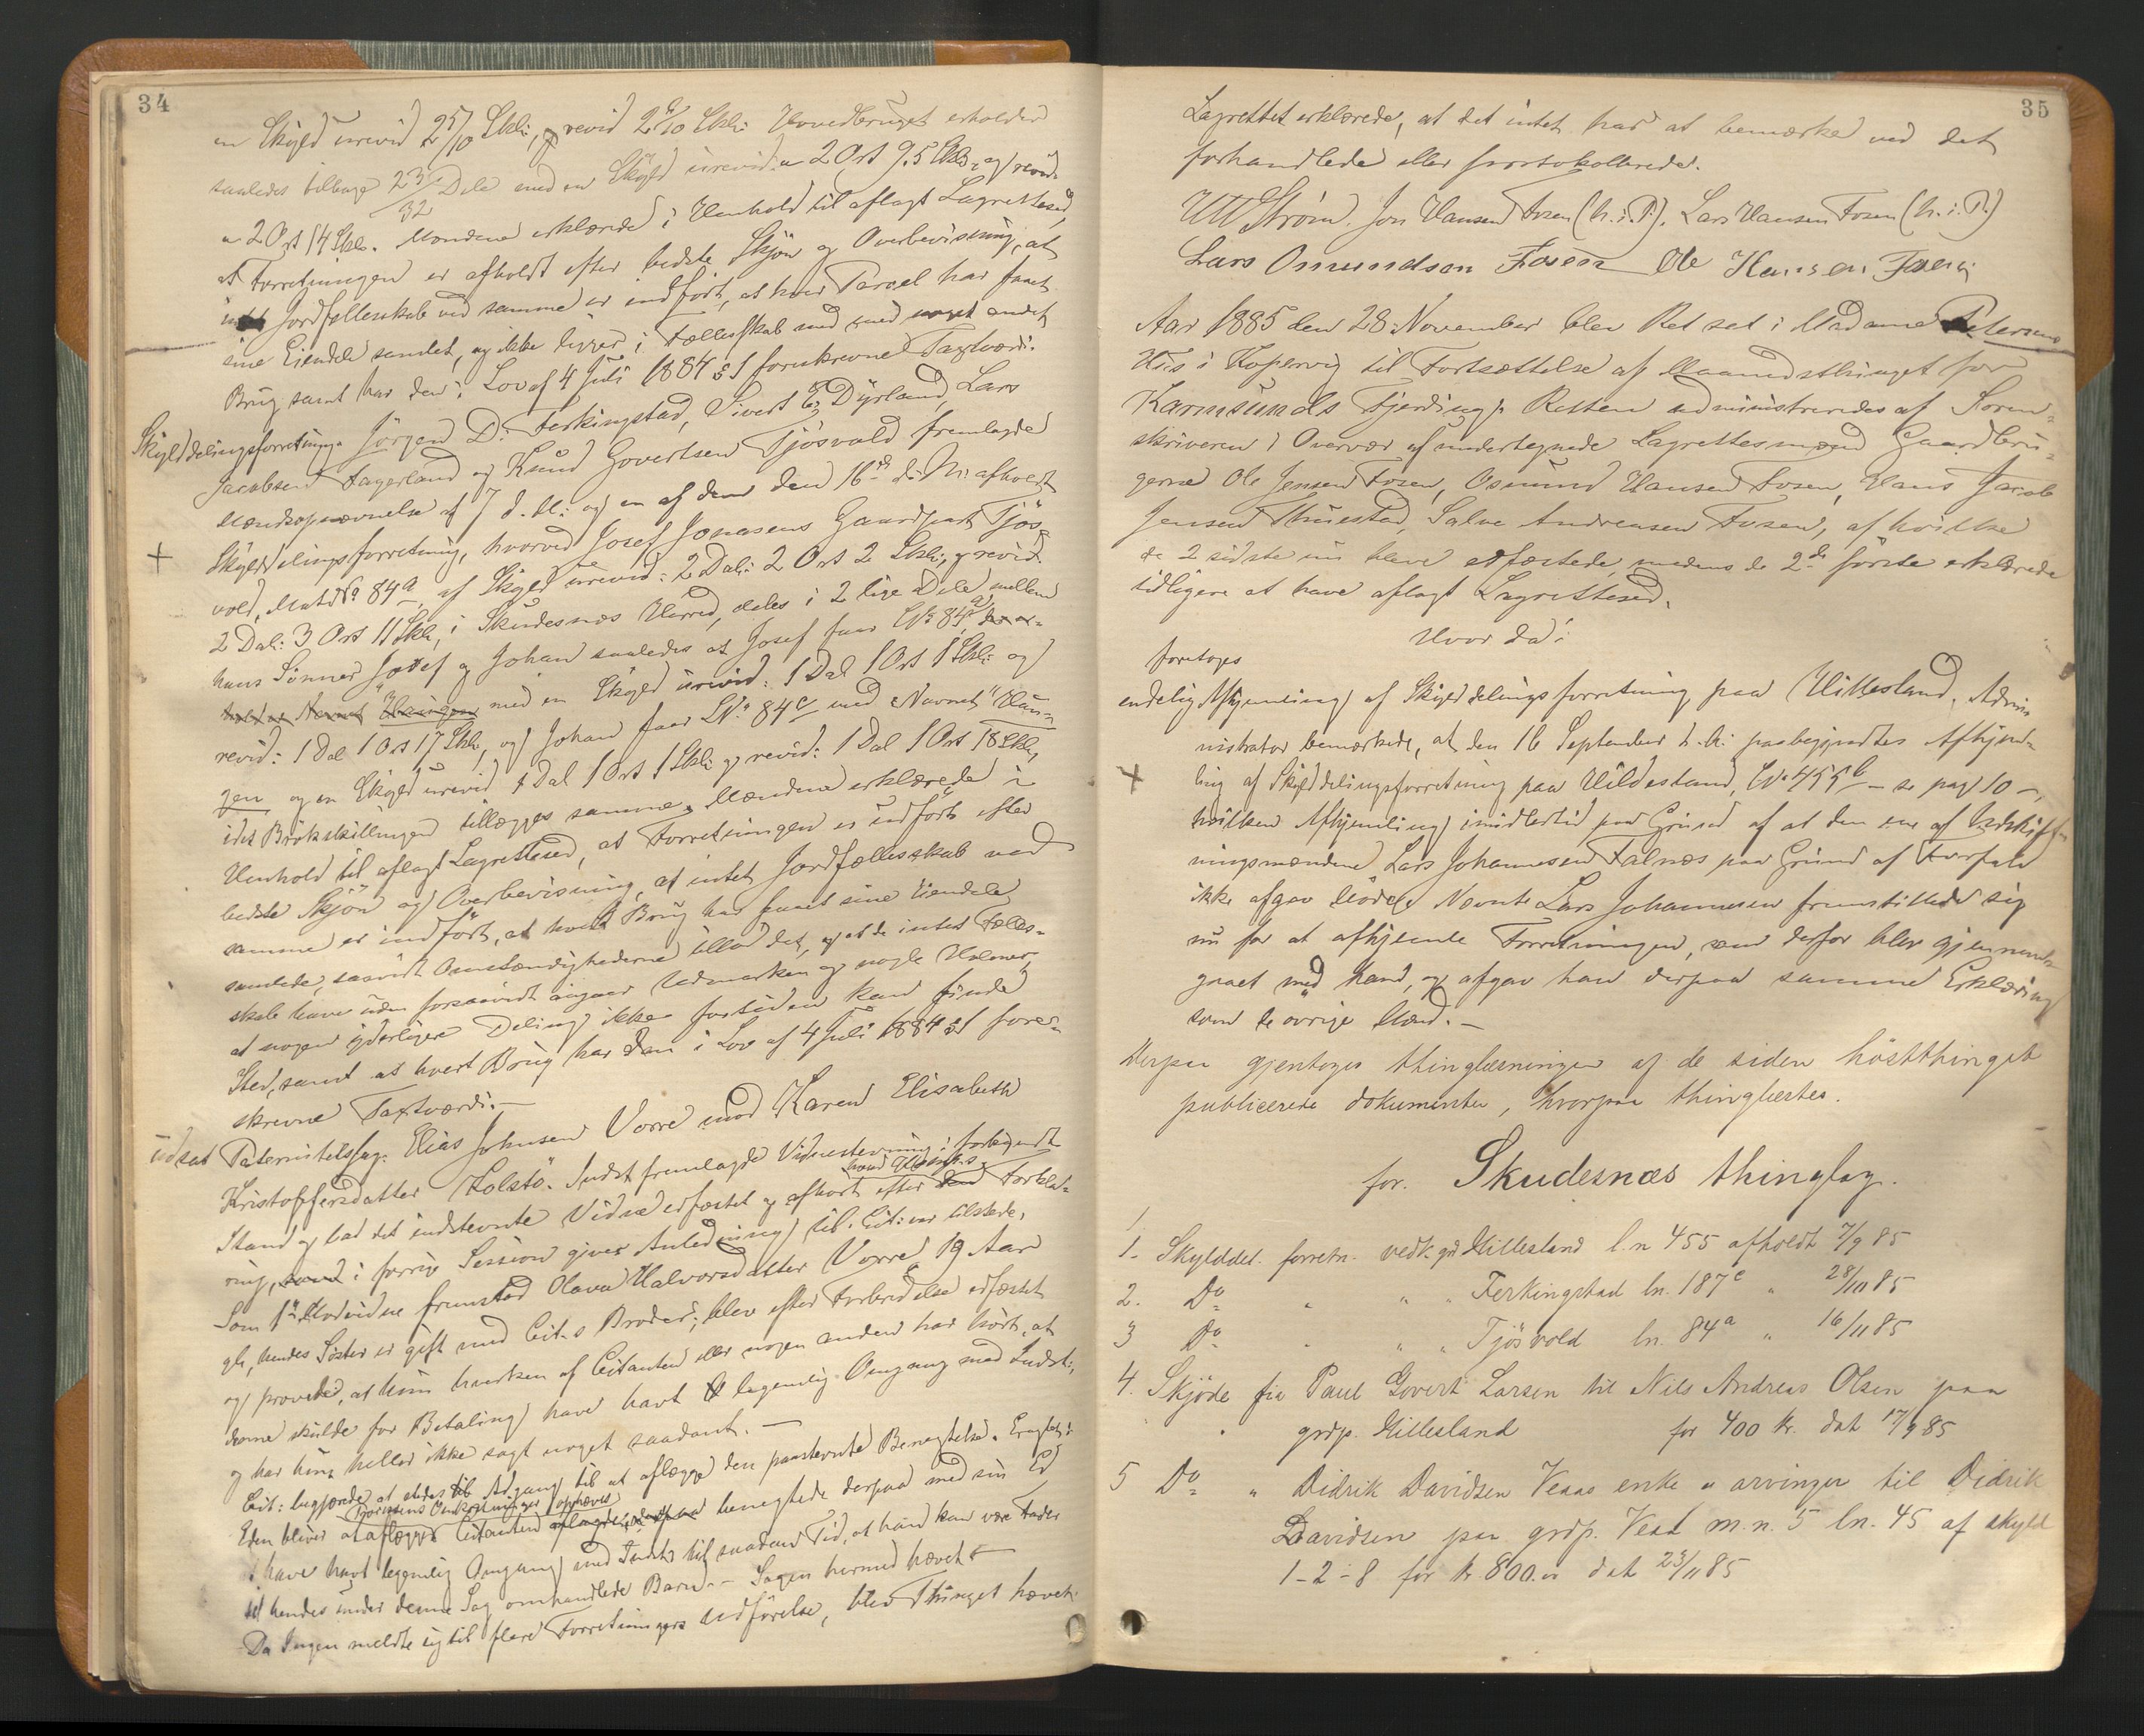 34
en Skyld urevid 2 5/10 Skl:, og revid 2 6/10 Skl: Hovedbruget erholder
saaledes tilbage 23/32 Dele med en Skyld urevid. a 2 Ort 9.5 Skl: og revid.
a 2 Ort 14 Skl. Mændene erklærede i Henhold til aflagt Lagrettesed,
at Forretningen er afholdt efter bedste Skjøn og Overbevisning, at
intet Jordfællesskab ved samme er indført, at hver Parcel har faaet
sine Eiendele samlet, og ikke ligger i Fællesskab med noget andet
Brug samt har den i Lov af 4 Juli 1884 § 1 foreskrevne Taxtværdi.
Skylddelingsforretning. Jørgen D. Ferkingstad, Sivert E. Dyrland, Lars
Jacobsen Fagerland og Knud Govertsen Tjøsvold fremlagde
Mændsopnævnelse af 7 d. M: og en af dem den 16de d: M: afholdt
Skylddelingsforretning, hvorved Josef Jonasens Gaardpart Tjøs-
vold, Matr. No 84a, af Skyld urevid: 2 Dal: 2 Ort 2 Skl:, og revid.
2 Dal: 3 Ort 11 Skl, i Skudesnæs Herred, deles i 2 lige Dele mellem
hans Sønner Josef og Johan saaledes at Josef faar LNo 84a
Haugen med en Skyld urevid: 1 Dal 1 Ort 1 Skl: og
revid: 1 Dal 1 Ort 17 Skl, og Johan faar LNo 84c med Navnet "Hau-
gen og en Skyld urevid 1 Dal 1 Ort 1 Skl: og revid: 1 Dal 1 Ort 18 Skl,
idet Brøkskillingen tillægges samme. Mændene erklærede i
Henhold til aflagt Lagrettesed, at Forretningen er udført efter
bedste Skjøn og Overbevisning, at intet Jordfællesskab ved
samme er indført, at hvert Brug har faaet sine Eiendele
samlede, saavidt Omstændighederne tillod det, og at de intet Fælles-
skab have uden forsaavidt angaar Udmarken og nogle Holmer,
at nogen yderligere Deling ikke for tiden kan finde
Sted, samt at hvert Brug har den i Lov af 4 Juli 1884 § 1 fore-
skrevne Taxtværdi.
udsat Paternitetssag. Elias Johnsen Vorre mod Karen Elisabeth
Kristoffersdatter Kolstø. Indst. fremlagde Vidnestevning i forkyndt
Stand og bad det indstevnte Vidne edfæstet og afhørt efter Forkla-
ring, i forrige Session giver Anledning til. Cit: var tilstede.
Som 1ste Modvidne fremstod Olava Halvorsdatter Vorre, 19 Aar
gl., hendes Søster er gift med Cit.s Broder; blev efter Forberedelse edfæstet
og provede, at hun hverken af Citanten eller nogen anden har hørt, at
denne skulde for Betaling have havt legemlig Omgang med Indst:,
og har hun heller ikke sagt noget saadant.
Cit: begjærede at stedes til Adgang til at aflægge den paastevnte Benegtelsesed.
Eden bliver at aflægge. Citanten benegtede derpaa med sin Ed
i have havt legemlig Omgang med Indst: til saadan Tid, at han kan være Fader
til hendes under denne Sag omhandlede Barn. – Sagen hermed hævet.
Da Ingen meldte sig til flere Forretningers Udførelse, blev Thinget hævet.
35
Lagrettet erklærede, at det intet har at bemærke ved det
forhandlede eller protokollerede.
UW Strøm. Jon Hansen Fosen (h.i.P.). Lars Hansen Fosen (h.i.P.)
Lars Omundsen Fosen Ole Hansen Fosen
Aar 1885 den 28 November blev Ret sat i Madame Petersens
Hus i Kopervig til Fortsættelse af Maanedsthinget for
Karmsunds Fjerding. Retten administreredes af Soren-
skriveren i Overvær af undertegnede Lagrettesmænd Gaardbru-
gerne Ole Jensen Fosen, Osmund Hansen Fosen, Hans Jacob
Jensen Thuestad, Salve Andreasen Fosen, af hvilke
de 2 sidste nu bleve edfæstede, medens de 2de første erklærede
tidligere at have aflagt Lagrettesed.
Hvor da:
foretoges
endelig Afhjemling af Skylddelingsforretning paa Hillesland. Admi-
nistrator bemærkede, at den 16 September d. A: paabegyndtes Afhjem-
ling af Skylddelingsforretning paa Hillesland, LNo 455b – se pag 10 –,
hvilken Afhjemling imidlertid paa Grund af at den ene af Udskift-
ningsmændene, Lars Johannesen Falnæs paa Grund af Forfald
ikke afgav Møde. Nevnte Lars Johannesen fremstillede sig
nu for at afhjemle Forretningen, som derfor blev gjennem-
gaaet med ham, og afgav han derpaa samme Erklæring
som de øvrige Mænd. –
Derpaa gjentoges thinglæsningen af de siden høstthinget
publicerede dokumenter, hvorpaa thinglæstes.
for Skudesnæs thinglag.
1
1. Skylddel. forretn. vedk. grd Hillesland l.n 455 afholdt 7/9 85
2. Do " " " Ferkingstad ln. 187c " 28/10 85
3 Do " " " Tjøsvold ln. 84a " 16/11 85
4. Skjøde fra Paul Govert Larsen til Nils Andreas Olsen paa
grdp. Hillesland for 400 kr. dat 17/9 85
5 Do " Didrik Davidsen Veaas enke & arvinger til Didrik
Davidsen paa grdp. Vea m.n. 5 ln. 45 af skyld
1-2-8 for kr. 800.00 dat 23/11 85